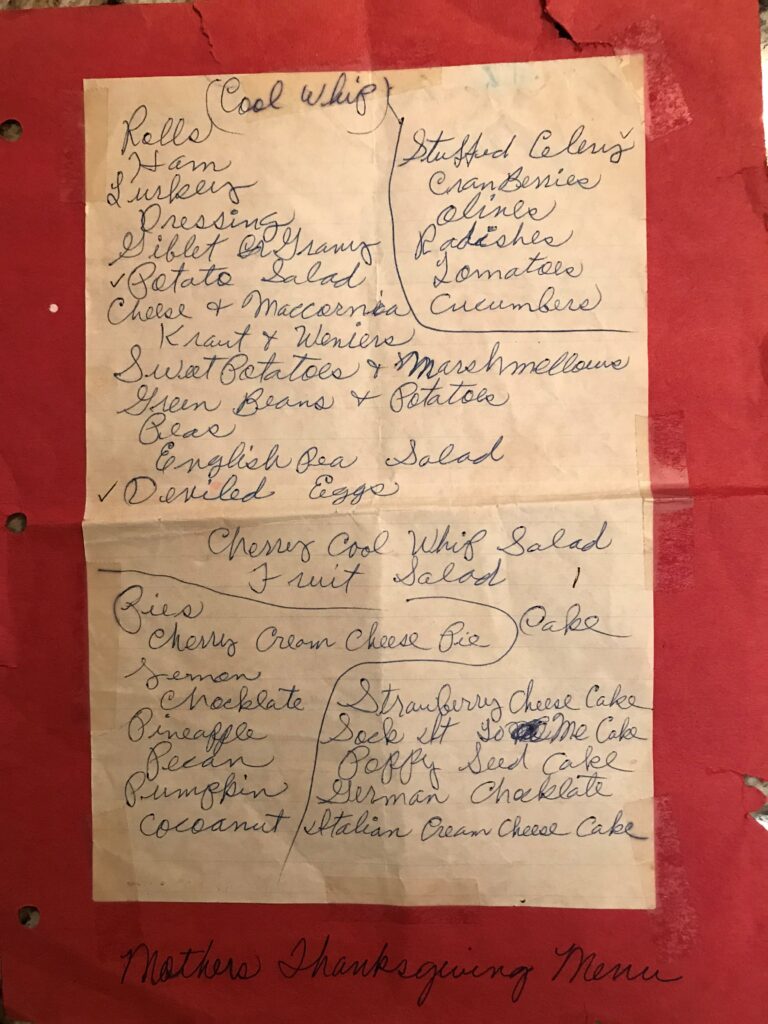 (Cool Whip)
Rolls
Ham
Turkey
Dressing
Giblet or Gravy
✓Potato Salad
Cheese & Maccornia
Kraut & Weniers
Sweet Potatoes & Marshmellows
Green Beans & Potatoes
Peas
English Pea Salad
✓ Deviled Eggs
Stuffed Celery
CranBerries
Olives
Radishes
Tomatoes
Cucumbers
Cherry Cool Whip Salad
Fruit Salad
Pies
Cherry Cream Cheese Pie
Lemon
Chocklate
Pineapple
Pecan
Pumpkin
Cocoanut
Cake
Strawberry Cheese Cake
Sock It To Me Cake
Poppy Seed Cake
German Chocklate
Italian Cream Cheese Cake
Mothers Thanksgiving Menu